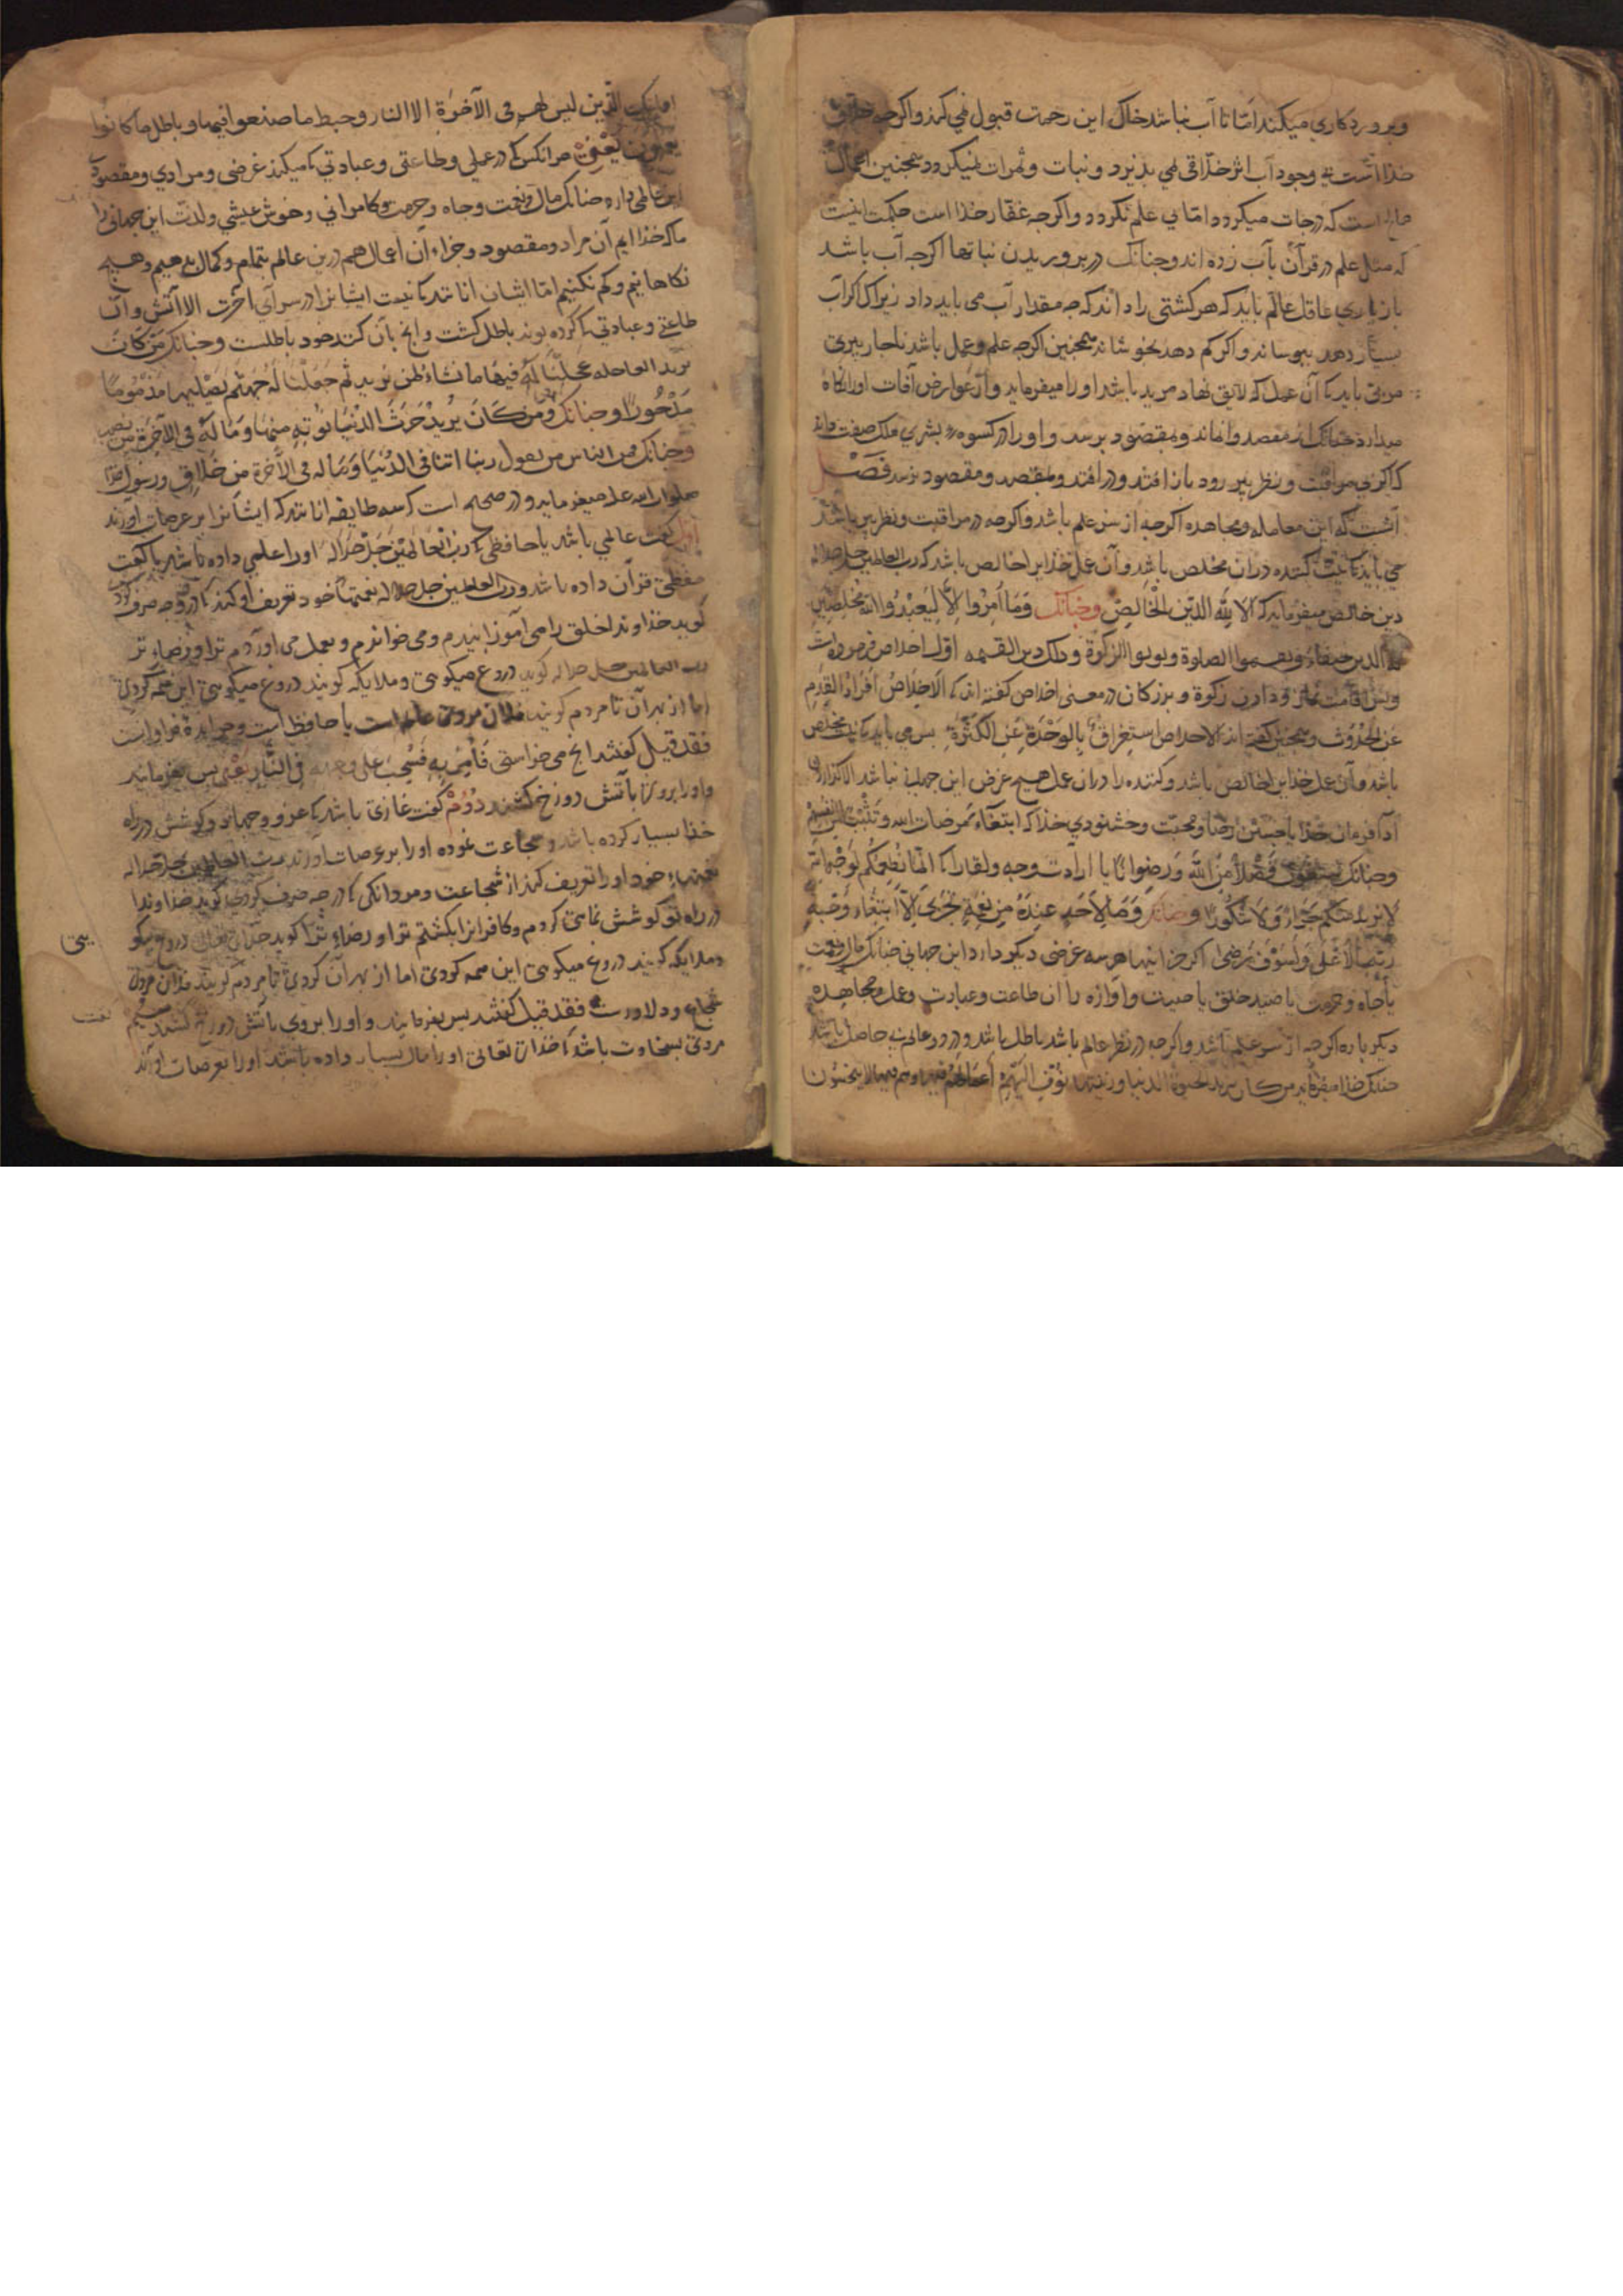 و پرورد کاری میکند اما تا آب نباشد خاک این رحمت قبول نمی کند و اکرجه
خذا است بی وجود آب اثر خلاقی نمی بذیرد و نبات و ثمرات نمیکردد همجنین اعمال
است که درجات میکردد اما بی علم نکردد و اکرجه غفار خذا است حکمت اینست
که مثل علم در قرآن بآب زده اند و جنانک در بروریدن نباتها اکرجه آب باشد
بازیاری عاقل عالم باید که هر کشتی را داند که جه مقدار آب می باید داد زیرا ک اکر آب
بسیار دهد ببوساند و اکر کم دهد بخوشاند همجنین اکرجه علم و عمل باشد ناجار بیری
مربی باید تا آن عمل که لایق نهاد مرید باشد او را میفرماید و از عوارض آفات او را نکاه
میدارد از مقصد وا نماند و بمقصود برسد و او را در کسوه بشری ملک صفت
ک اکر بی مراقبت و نظر بیر رود باز افتد و در افتد و بمقصد و مقصود نرسد فصل
آنست که این معامله و مجاهده اکرجه از سر علم باشد و اکرجه در مراقبت و نظر بیر باشد
می باید تا نیت کننده در آن مخلص باشد و آن عمل خذایرا خالص باشد که رب العالمین جل جلاله
دین خالص میفرماید که الا لله الدین الخالص و جنانک وما امروا الا لیعبدوا الله مخلصین
له الدین حنفاء ویقیموا الصلوة ویوتوا الزکوة وذلک دین القیمه اول اخلاص فرموده است
و بس اقامت نماز و دادن زکوة و بزرکان در معنی اخلاص کفته اند ک الاخلاص افراد القدم
عن الحدوث و همجنین کفته اند الاخلاص استغراق بالوحدة عن الکثرة بس می باید تا نیت مخلص
باشد و آن عمل خذایرا خالص باشد و کننده را در آن عمل هیج غرض این جهانی نباشد الا کزاردن
اداء فرمان خذا یا جستن رضا و محبت و خشنودی خذا که ابتغاء مرضات الله وتثبیتا من انفسهم
و جنانک یبتغون فضلا من الله ورضوانا یا ارادت وجه و لقا را ک انما نطعمکم لوجه الله
لا نرید منکم جزاء ولا شکورا و جنانک وما لاحد عنده من نعمة تجزی الا ابتغاء وجه
ربه الاعلی ولسوف یرضی اکر جز اینها هر سه غرضی دیکر دارد این جهانی جنانک مال و نعمت
یا جاه و حرمت یا صید خلق یا صیت و آوازه را آن طاعت و عبادت و عمل و مجاهده
دیکر باره اکرجه از سر علم باشد و اکرجه در نظر عالم باشد باطل باشد و در دو عالم بی حاصل باشد
جنانک خذا میفرماید من کان یرید الحیوة الدنیا وزینتها نوف الیهم اعمالهم فیها وهم فیها لا یبخسون
اولئک الذین لیس لهم فی الآخرة الا النار وحبط ما صنعوا فیها وباطل ما کانوا
یعملون یعنی هر انکس ک در عملی و طاعتی و عبادتی ک میکند غرضی و مرادی و مقصود
این عالمی دارد جنانک مال و نعمت و جاه و حرمت و کامرانی و خوش عیشی و لذت این جهانی را
ما که خذا ایم آن مراد و مقصود و جزاء آن اعمال هم درین عالم بتمام و کمال بدهیم و هیج
نکاهانیم و کم نکنیم اما ایشان آنانند ک نیست ایشانرا در سرآی آخرت الا آتش و آن
طاعتی و عبادتی ک کرده بوند باطل کشت و انج بآن کنند خود باطلست و جنانک من کان
یرید العاجله عجلنا له فیها ما نشاء لمن نرید ثم جعلنا له جهنم یصلیها مذموما
مدحورا و جنانک ومن کان یرید حرث الدنیا نوته منها وما له فی الآخرة من نصیب
و جنانک فمن الناس من یقول ربنا آتنا فی الدنیا وما له فی الآخرة من خلاق و رسول خدا
صلوات الله علیه میفرماید و در صحیح است که سه طایفه آنانند که ایشانرا بر عرصات آورند
اول کفت عالمی باشد یا حافظی ک رب العالمین جل جلاله او را علمی داده باشد یا کفت
حفظ قرآن داده باشد و رب العالمین جل جلاله نعمتهاء خود تعریف او کند ک در جه صرف کردی
کوید خذاوندا خلق را می آموزانیدم و می خواندم و بعمل می آوردم ترا و رضاء ترا
رب العالمین جل جلاله کوید دروغ میکوئی و ملایکه کویند دروغ میکوئی این همه کردی
اما از بهر آن تا مردم کویند فلان مردی عالم است یا حافظ است
فقد قیل کفتند انج می خواستی فامر به فسحب علی وجهه فی النار یعنی بس بفرمایند
و او را بروی بآتش دوزخ کشند دوم کفت غازی باشد ک غزو و جهاد و کوشش در راه
خذا بسیار کرده باشد و شجاعت نموده او را بر عرصات آورند رب العالمین جل جلاله
نعمتهاء خود او را تعریف کند از شجاعت و مردانکی ک در جه صرف کردی کوید خذاوندا
در راه تو کوشش نمامی کردم و کافرانرا بکشتم ترا و رضاء ترا کوید حق تعالی دروغ میکو
یی
و ملایکه کویند دروغ میکوئی این همه کردی اما از بهر آن کردی تا مردم کویند فلان مردی
شجاع و دلاورست فقد قیل کفتند بس بفرمایند و او را بروی بآتش دوزخ کشند سیم
کفت
مردی بسخاوت باشد ک خذای تعالی او را مال بسیار داده باشد او را بعرصات آورند